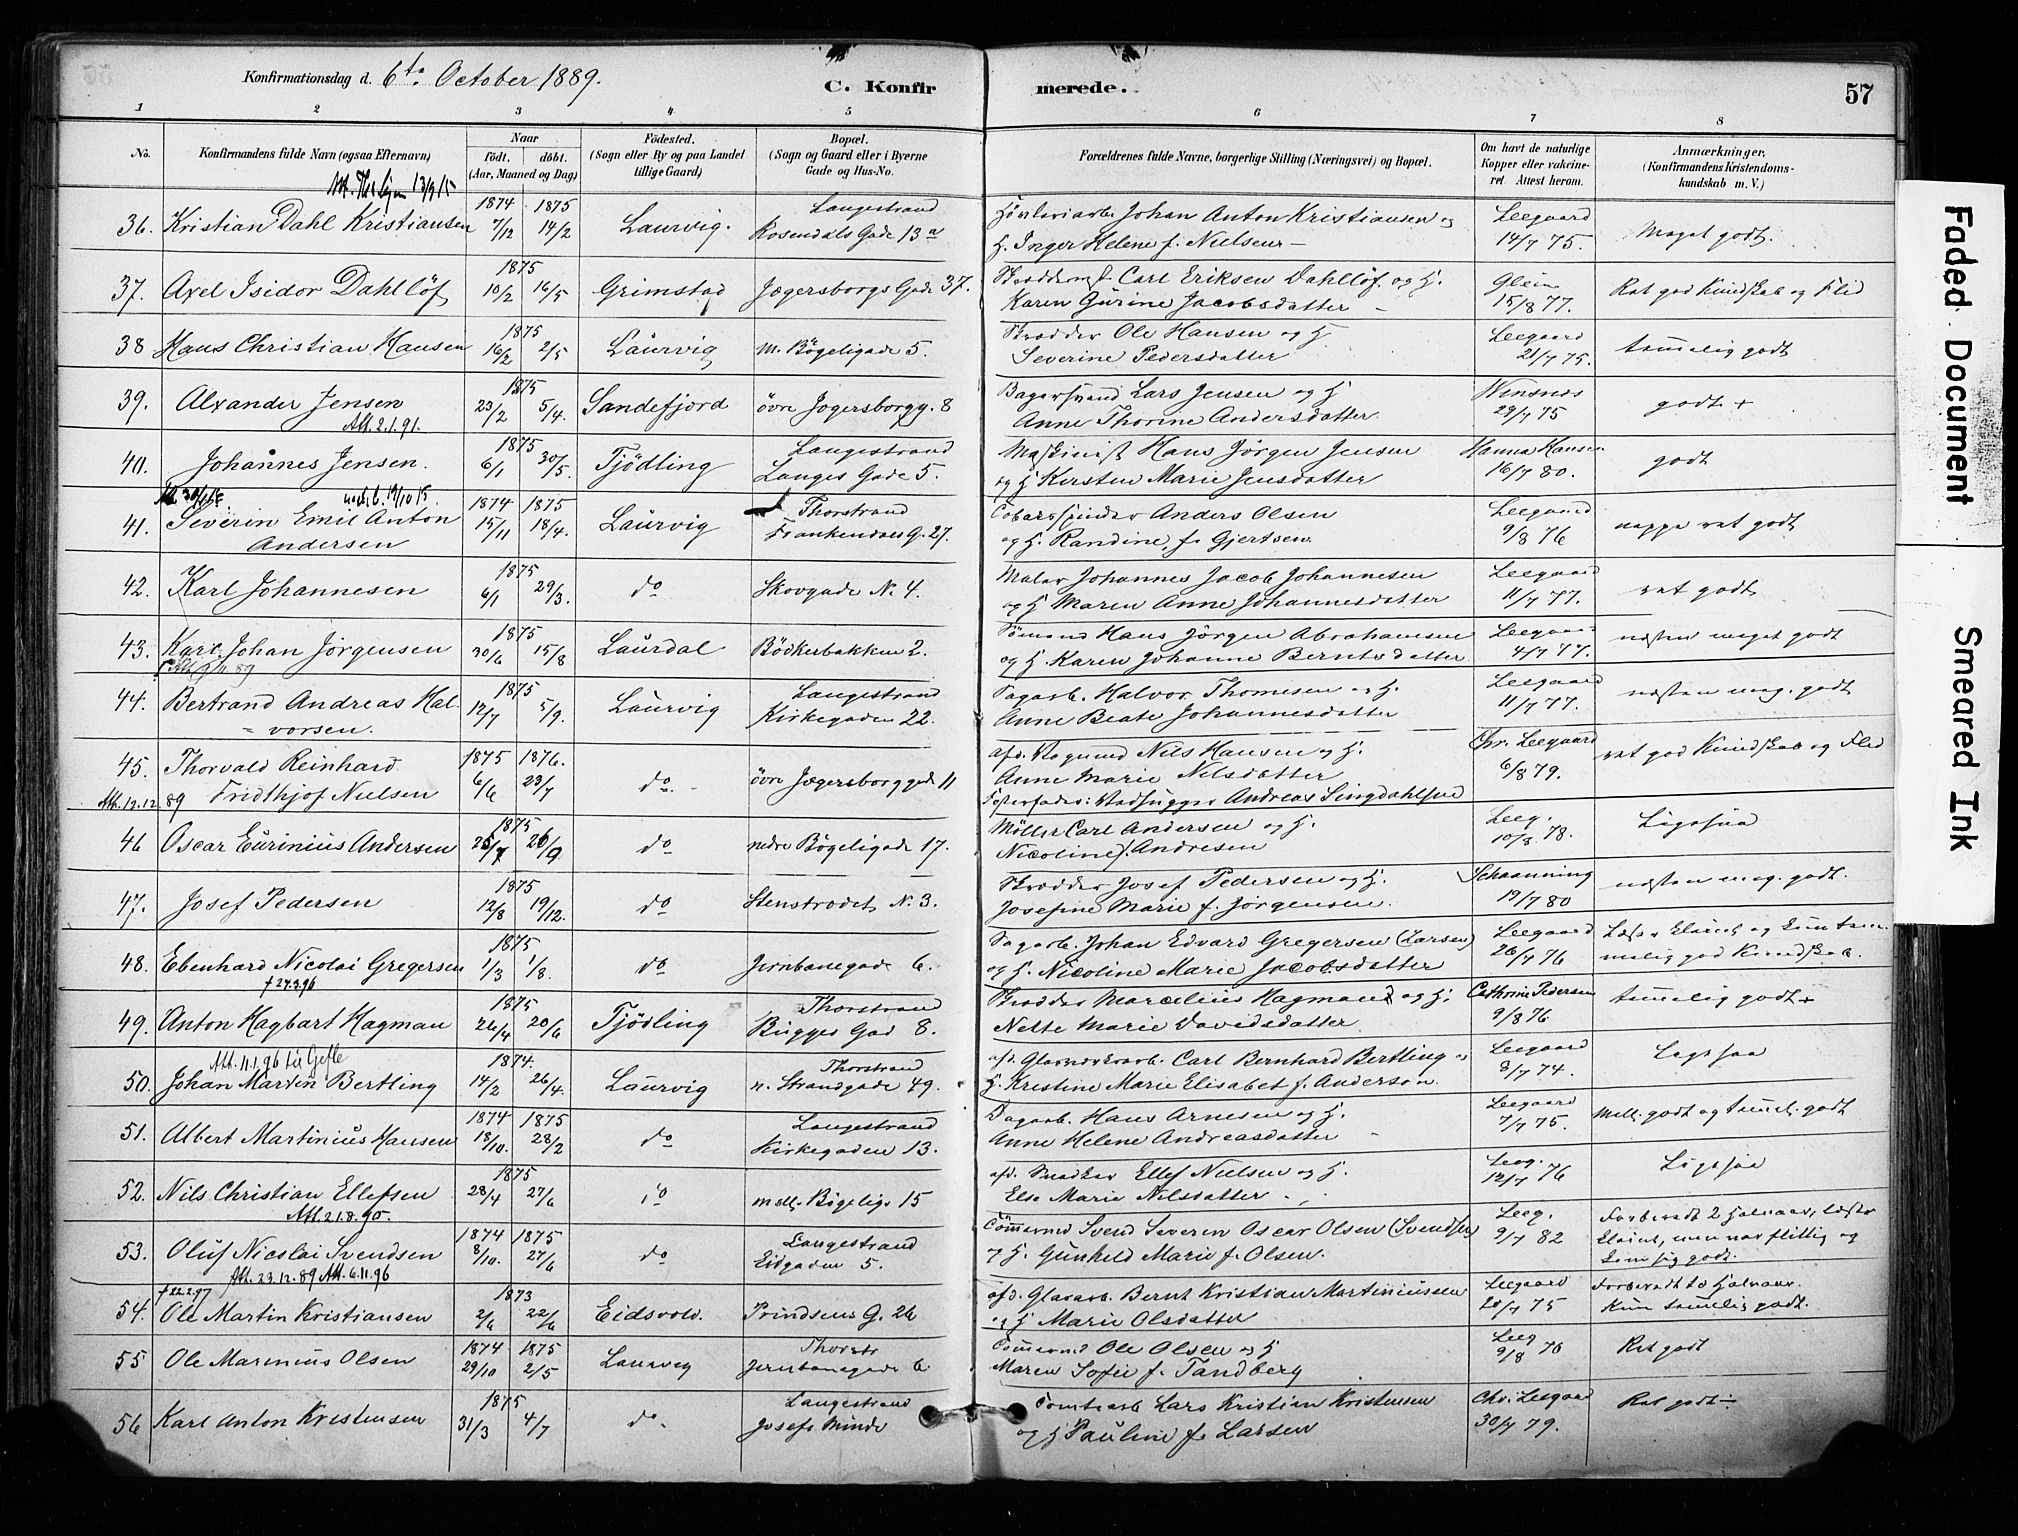 Konfirmationsdag d. 6te October 1889.
C. Konfir merede. 57
1 2 3 4 5 6 7 8
No. Konfirmandens fulde Navn (ogsaa Efternavn) Naar født, døbt. (Aar, Maaned og Dag) Fødested. (Sogn eller By og paa Landet tillige Gaard) Bopæl. (Sogn og Gaard eller i Byerne Gade og Hus-No. Forældrenes fulde Navne, borgerlige Stilling (Næringsvei) og Bopæl. Om havt de naturlige Kopper eller vakcineret. Attest herom. Anmærkninger. (Konfirmandens Kristendomskundskab m. V.)
13/9 15
36. Kristian Dahl Kristiansen 1874 7/12 1875 14/2 Laurvig. Langestrand Rosendals Gade 13a Johan Anton Kristiansen og
H. Inger Helene f. Nielsen – Leegaard 14/7 75. Meget godt.
37. Axel Isidor Dahllöf 1875 10/2 16/5 Grimstad Jægersborgs Gade 37. Carl Eriksen Dahllöf og H.
Karen Gurine Jacobsdatter – 15/8 77. Ret god Kundskab og Flid
38 Hans Christian Hansen 1875 16/2 2/5 Laurvig m. Bögeligade 5. Skrædder Ole Hansen og H
Severine Pedersdatter Leegaard 21/7 75. temmelig godt
39. Alxander Jensen 1875 23/2 5/4. Sandefjord övre Jegersborgg. 8 Lars Jensen og H
Anne Thorine Andersdatter. 29/7 75 godt +
Att. 2.1.91.
40. Johannes Jensen. 1875 6/1 30/5. Tjödling Langestrand Langes Gade 5. Maskinist Hans Jörgen Jensen
og H Kirsten Marie Jensdatter Hanna Hansen 16/7 80. godt
19/10 15.
41. Severin Emil Anton Andersen 1874 15/11 1875 18/4. Laurvig Thorstrand Frankendals G. 27. Tobaksspinder Anders Olsen
og H. Randine f. Gjertsen. Leegaard 9/8 76 neppe ret godt
42. Karl Johannesen 1875 6/1 29/3. do Skovgade N. 4. Maler Johannes Jacob Johannesen
og H Maren Anne Johannesdatter Leegaard 11/7 77. ret godt
43. Karl Johan Jörgensen 1875 30/6 15/8 Laurdal Bödkerbakken 2. Sömand Hans Jörgen Abrahamsen
og H. Karen Johanne Berntsdatter Leegaard 4/7 77. næsten meget godt
44. Bertrand Andreas Halvorsen. 1875 12/7 5/9. Laurvig Langestrand Kirkegaden 22. Sagarb. Halvor Thomesen og H.
Anne Beate Johannesdatter Leegaard 11/7 77. næsten meg. godt
45. Thorvald Reinhard Fridthjof Nielsen 1875 6/6 1876. 23/7 do. övre Jægersborggade 11 afd. Nils Hansen og H.
Anne Marie Nilsdatter
Fosterfader: Andreas Chr. Leegaard 6/8 79. ret god Kundskab og Flid
Att. 12.12.89
46 Oscar Eurinius Andersen 1875 25/7 26/9 do nedre Bögeligade 17. Møller Carl Andersen og H.
Nicoline f. Andresen Leeg. 10/8 78. Ligesaa
47. Josef Pedersen 1875 12/8 19/12. do Stenströdet N. 3. Skrædder Josef Pedersen og H.
Josefine Marie f. Jörgensen. Schaanning 19/7 80 næsten meg. godt.
48. Ebenhard Nicolai Gregersen 1875 1/3 1/8. do Jernbanegade 6. Sagarb. Johan Edvard Gregersen (Larsen)
og H. Nicoline Marie Jacobsdatter Leegaard 26/7 76 god Kundskab.
† 27.3.96
49. Anton Hagbart Hagman 1875 26/4 20/6 Tjödling Thorstrand Bugges Gad 8. Skrædder Marcelius Hagman og H.
Nette Marie Davidsdatter Cathrine Pedersen 9/8 76. temmelig godt +
Att. 11.1.96 til Gefle
50. Johan Martin Bertling 1874. 14/2 26/4. Laurvig Thorstrand n. Strandgade 49. afd. Glasværksarb. Carl Bernhard Bertling og
H. Kristine Marie Elisabet f. Anderson. Leegaard 8/7 74. Ligesaa
51. Albert Martinius Hansen 1874 18/10. 1875 28/2 do Langestrand Kirkegaden 13. Dagarb. Hans Arnesen og H.
Anne Helene Andreasdatter – Leegaard 7/7 75. Mell. godt og temmel. godt
52. Nils Christian Ellefsen 1875 28/4 27/6 do mell. Bögelig. 15 afd. Snedker Ellef Nielsen og H.
Else Marie Nilsdatter – Leeg. 12/7 76 Ligesaa
Att. 21.8.90.
53. Oluf Nicolai Svendsen 1874 8/10. 1875 27/6 do Langestrand Eidgaden 5. Tömmermd Svend Severen Oscar Olsen (Svendsen)
og H. Gunhild Marie f. Olsen. Leeg. 9/7 82 Forberedt 2 Halvaar, læste men var flittig og
godt.
Att. 23.12.89 Att. 6.11.96
† 22.2.97
54. Ole Martin Kristiansen 1873 2/6 22/6 Eidsvold. Prindsens G. 26 afd. Glasarb. Bernt Kristian Martiniussen
og H Marie Olsdatter Leegaard 20/7 75 Forberedt to Halvaar.
Kun temmelig godt.
55 Ole Marinius Olsen 1874 29/10 1875 2/5 Laurvig Thorstr Jernbanegade 6 Tömmermd Ole Olsen og H
Maren Sofie f. Tandberg Leeg 9/8 76 Ret godt
56 Karl Anton Kristensen 1875 31/3 4/7 do. Langestrand Josefs Minde Tomtearb Lars Kristian Kristensen
og H Pauline f. Larsen Chr. Leegaard 30/7 79. Ret godt ÷
Faded Document
Smeared Ink